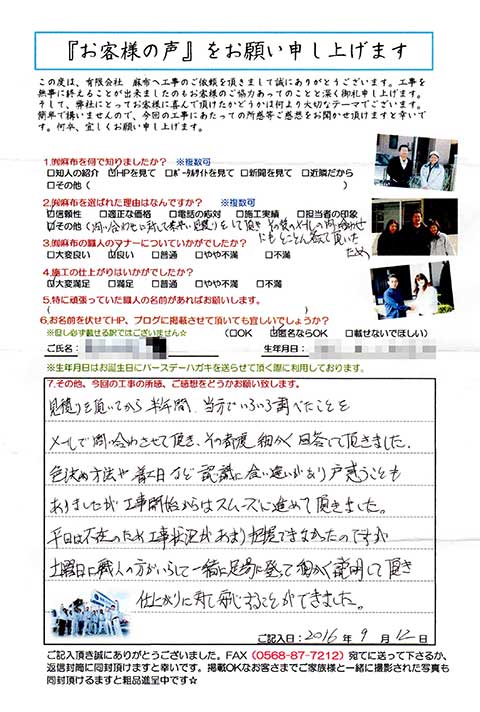 『お客様の声』をお願い申し上げます
この度は、有限会社 麻布へ工事のご依頼を頂きまして誠にありがとうございます。工事を
無事に終えることが出来ましたのもお客様のご協力あってのことと深く御礼申し上げます。
そして、弊社にとってお客様に喜んで頂けたかどうかは何より大切なテーマでございます。
簡単で構いませんので、今回の工事にあたっての所感等ご感想をお聞かせ頂けますと幸いで
す。何卒、宜しくお願い申し上げます。
1.㈲麻布を何で知りましたか? ※複数可
□知人の紹介 ☑HPを見て □ポータルサイトを見て □新聞を見て □近隣だから
□その他( )
2.㈲麻布を選ばれた理由はなんですか? ※複数可
☑信頼性 □適正な価格 □電話の応対 □施工実績 □担当者の印象
☑その他(問い合わせに対して素早い見積りをして頂き その後のメールの問い合わせ
にもとことん答えて頂いた
ため
3.㈲麻布の職人のマナーについていかがでしたか?
□大変良い ☑良い □普通 □やや不満 □不満
4.施工の仕上がりはいかがでしたか?
☑大変満足 □満足 □普通 □やや不満 □不満
5.特に頑張っていた職人の名前があればお願いします。
( )
6.お名前を伏せてHP、ブログに掲載させて頂いても宜しいでしょうか?
※但し必ず載せる訳ではございません☆ (□OK ☑匿名ならOK □載せないでほしい)
ご氏名: 生年月日:
※生年月日はお誕生日にバースデーハガキを送らせて頂く際に利用しております。
7.その他、今回の工事の所感、ご感想をどうかお願い致します。
見積りを頂いてから半年間、当方でいろいろ調べたことを
メールで問い合わせさせて頂き、その都度細かく回答して頂きました。
色決め方法や着工日など認識に食い違いがあり戸惑うことも
ありましたが工事開始からはスムーズに進めて頂きました。
平日は不在のため工事状況があまり把握できなかったのですが
土曜日に職人の方がいらして一緒に足場に登って細かく説明して頂き
仕上がりに対して安心することができました。
ご記入日: 2016 年 9 月 12 日
ご記入頂き誠にありがとうございました。FAX(0568-87-7212)宛てに送って下さるか、
返信封筒に同封頂けますと幸いです。掲載OKなお客さまでご家族様と一緒に撮影された写真も
同封頂けるますと粗品進呈中です☆